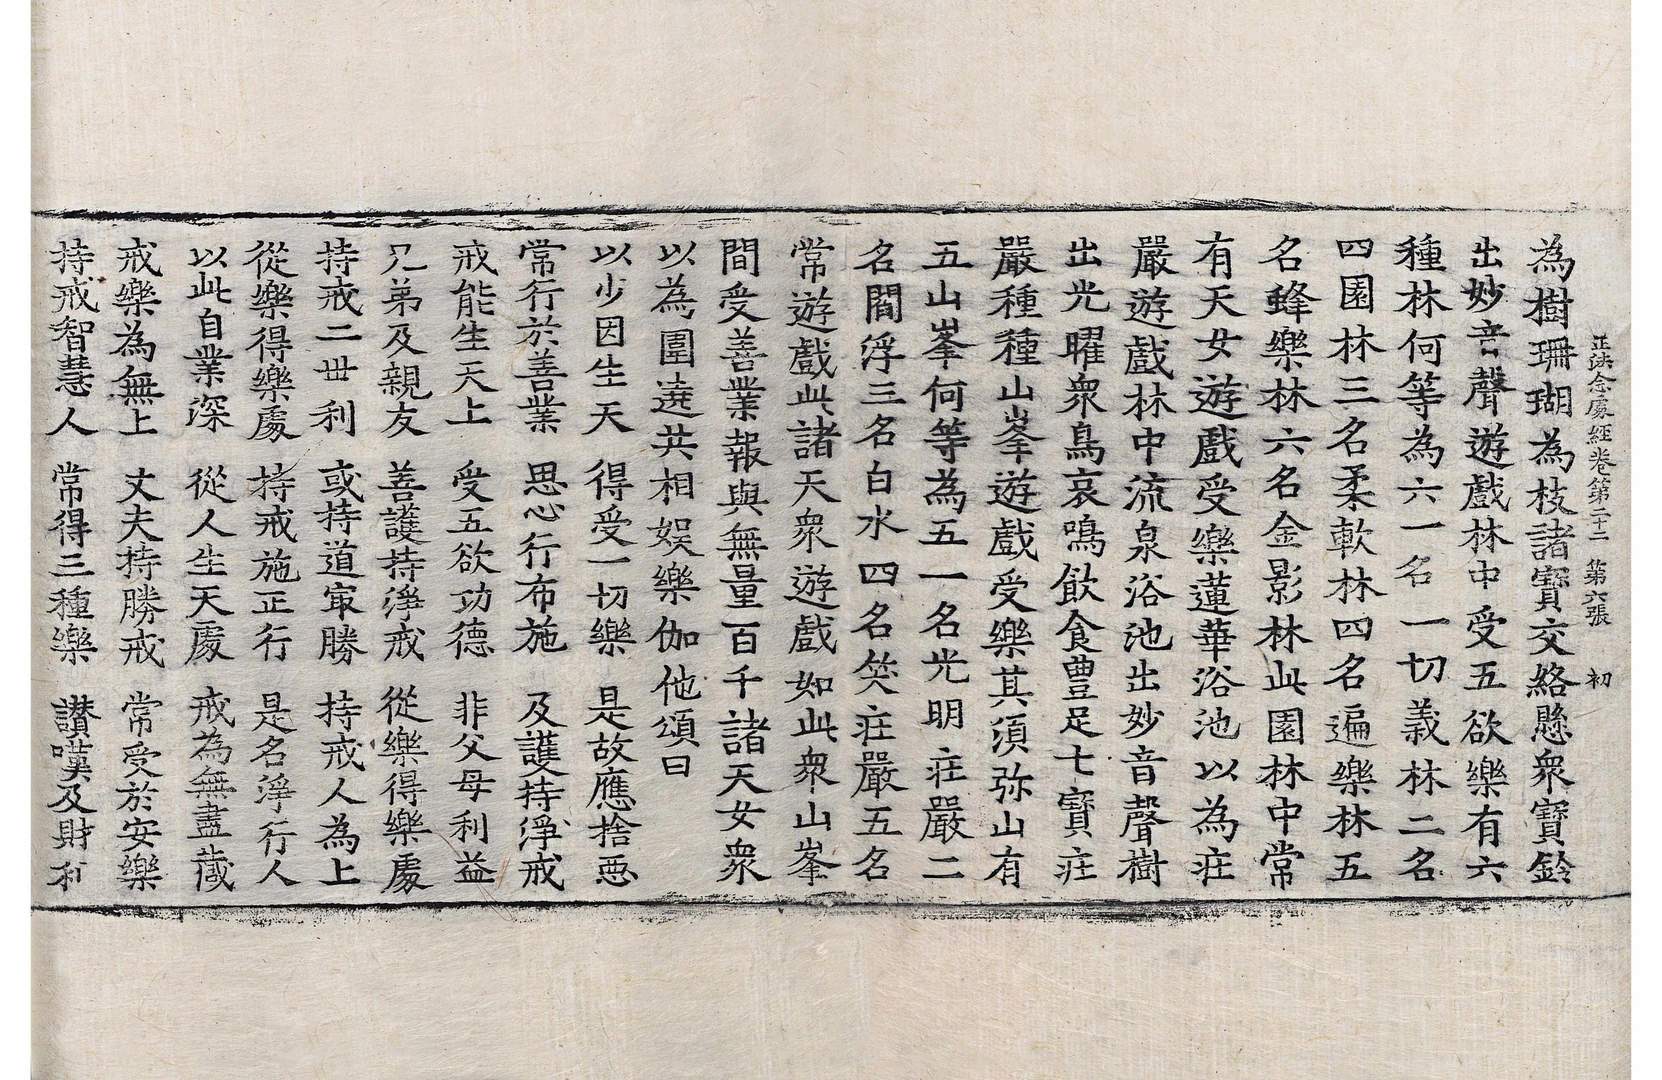 正法念處經卷第二十三 第六張 初
為樹珊瑚為枝諸寶交絡懸衆寶鈴
出妙音聲遊戲林中受五欲樂有六
種林何等為六一名一切義林二名
四園林三名柔軟林四名遍樂林五
名蜂樂林六名金影林此園林中常
有天女遊戲受樂蓮華浴池以為庄
嚴遊戲林中流泉浴池出妙音聲樹
出光曜衆鳥哀鳴飲食豊足七寶庄
嚴種種山峯遊戲受樂其須弥山有
五山峯何等為五一名光明庄嚴二
名閻浮三名白水四名笑庄嚴五名
常遊戲此諸天衆遊戲如此衆山峯
間受善業報與無量百千諸天女衆
以為圍遶共相娛樂伽他頌曰
以少因生天 得受一切樂 是故應捨惡
常行於善業 思心行布施 及護持淨戒
戒能生天上 受五欲功德 非父母利益
兄弟及親友 善護持淨戒 從樂得樂處
持戒二世利 或持道㝡勝 持戒人為上
從樂得樂處 持戒施正行 是名淨行人
以此自業深 從人生天處 戒為無盡藏
戒樂為無上 丈夫持勝戒 常受於安樂
持戒智慧人 常得三種樂 讃嘆及財利